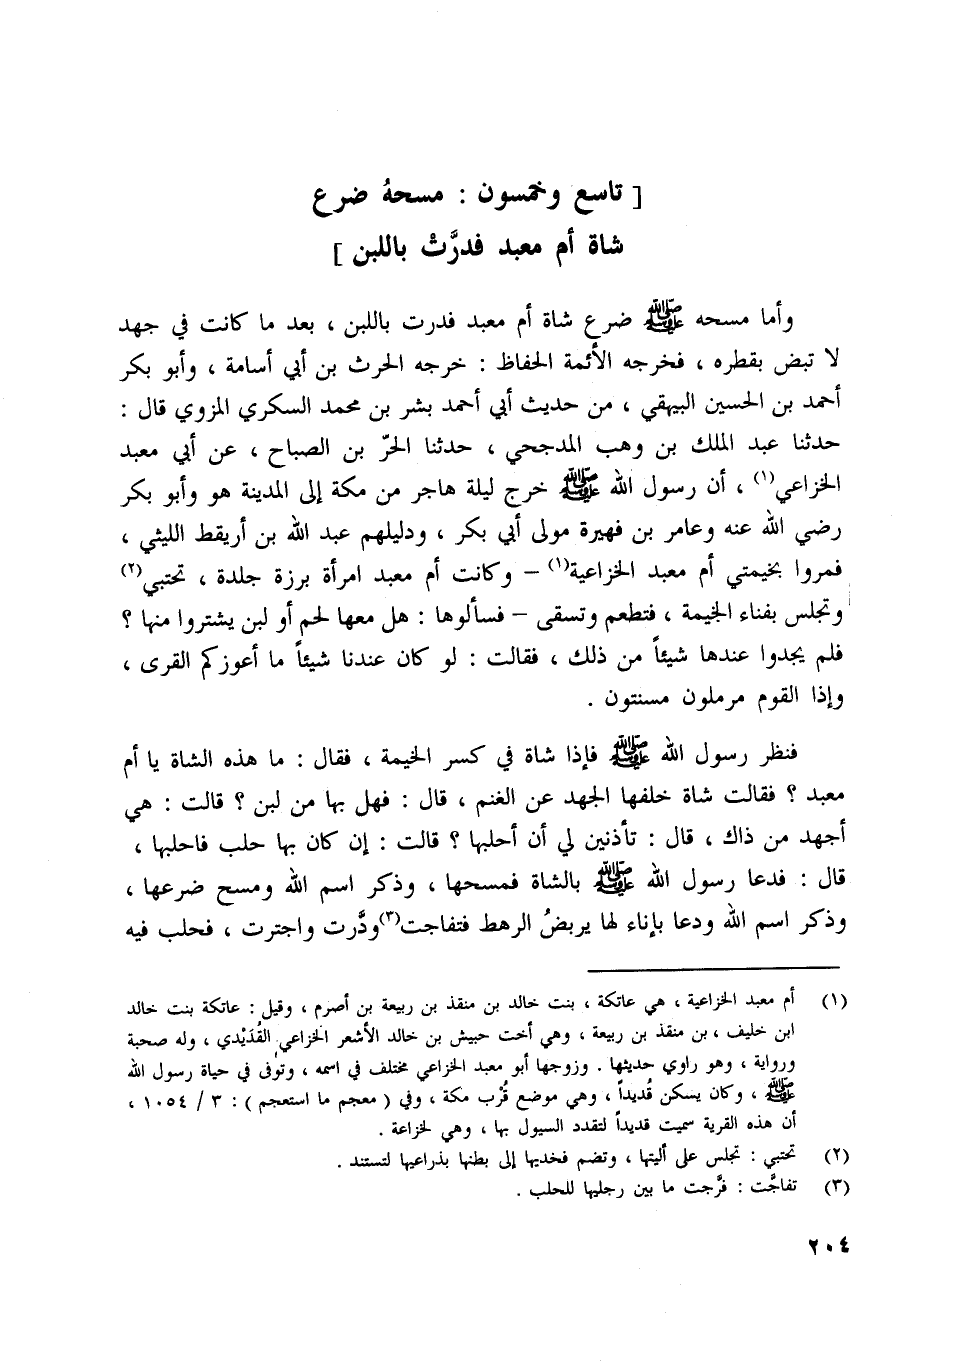 [ تاسع وخمسون : مسحهُ ضرع
شاة أم معبد فدرَّتْ باللبن ]
وأما مسحه ﷺ ضرع شاة أم معبد فدرت باللبن ، بعد ما كانت في جهد
لا تبض بقطره ، فخرجه الأئمة الحفاظ : خرجه الحرث بن أبي أسامة ، وأبو بكر
أحمد بن الحسين البيهقي ، من حديث أبي أحمد بشر بن محمد السكري المزوي قال :
حدثنا عبد الملك بن وهب المدجحي ، حدثنا الحرّ بن الصباح ، عن أبي معبد
الخزاعي(١) ، أن رسول الله ﷺ خرج ليلة هاجر من مكة إلى المدينة هو وأبو بكر
رضي الله عنه وعامر بن فهيرة مولى أبي بكر ، ودليلهم عبد الله بن أريقط الليثي ،
فمروا بخيمتي أم معبد الخزاعية(١) – وكانت أم معبد امرأة برزة جلدة ، تحتبي(٢)
وتجلس بفناء الخيمة ، فتطعم وتسقى – فسألوها : هل معها لحم أو لبن يشتروا منها ؟
فلم يجدوا عندها شيئاً من ذلك ، فقالت : لو كان عندنا شيئاً ما أعوزكم القرى ،
وإذا القوم مرملون مسنتون .
فنظر رسول الله ﷺ فإذا شاة في كسر الخيمة ، فقال : ما هذه الشاة يا أم
معبد ؟ فقالت شاة خلفها الجهد عن الغنم ، قال : فهل بها من لبن ؟ قالت : هي
أجهد من ذاك ، قال : تأذنين لي أن أحلبها ؟ قالت : إن كان بها حلب فاحلبها ،
قال : فدعا رسول الله ﷺ بالشاة فمسحها ، وذكر اسم الله ومسح ضرعها ،
وذكر اسم الله ودعا بإناء لها يربضُ الرهط فتفاجت(٣) ودَّرت واجترت ، فحلب فيه
(١) أم معبد الخزاعية ، هي عاتكة ، بنت خالد بن منقذ بن ربيعة بن أصرم ، وقيل : عاتكة بنت خالد
ابن خليف ، بن منقذ بن ربيعة ، وهي أخت حبيش بن خالد الأشعر الخزاعي القُدَيْدي ، وله صحبة
ورواية ، وهو راوي حديثها . وزوجها أبو معبد الخزاعي مختلف في اسمه ، وتوفى في حياة رسول الله
ﷺ ، وكان يسكن قُديداً ، وهي موضع قُرْب مكة ، وفي ( معجم ما استعجم ) : ٣ / ١٠٥٤ ،
أن هذه القرية سميت قديداً لتقدد السيول بها ، وهي لخزاعة .
(٢) تحتبي : تجلس على أليتها ، وتضم فخديها إلى بطنها بذراعيها لتستند .
(٣) تفاجَّت : فرَّجت ما بين رجليها للحلب .
٢٠٤